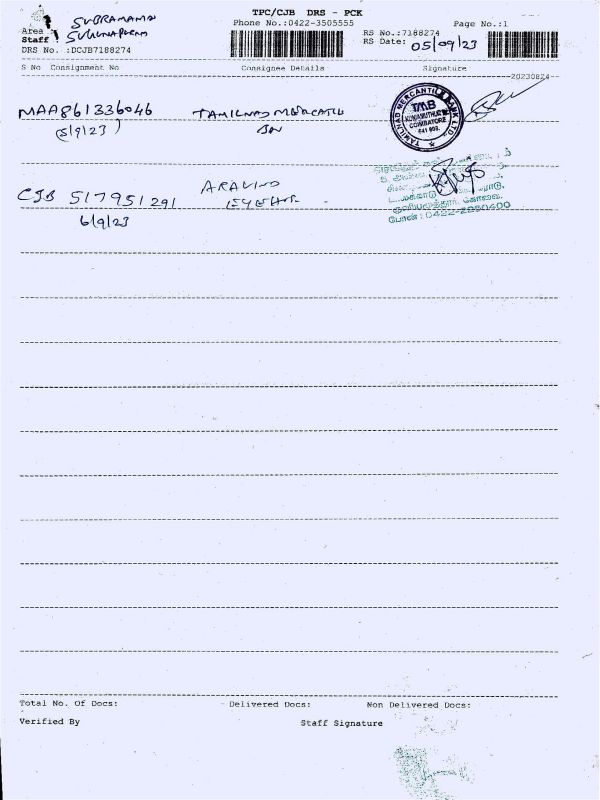 TPC/CJB DRS - PCK
Phone No.:0422-3505555
Page No.:1
Area :
Staff :
DRS No. :DCJB7188274
RS No.:7188274
RS Date: 05/09/23
S No Consignment No Consignee Details Signature
20230824
MAA861336046 TAMILNAD
5/9/23
TAMILNAD MERCANTILE BANK LTD.
TMB
COIMBATORE
641 008.
CJB 517951291 ARAVIND
6/9/23
போன் : 0422-2980400
Total No. Of Docs: Delivered Docs: Non Delivered Docs:
Verified By Staff Signature